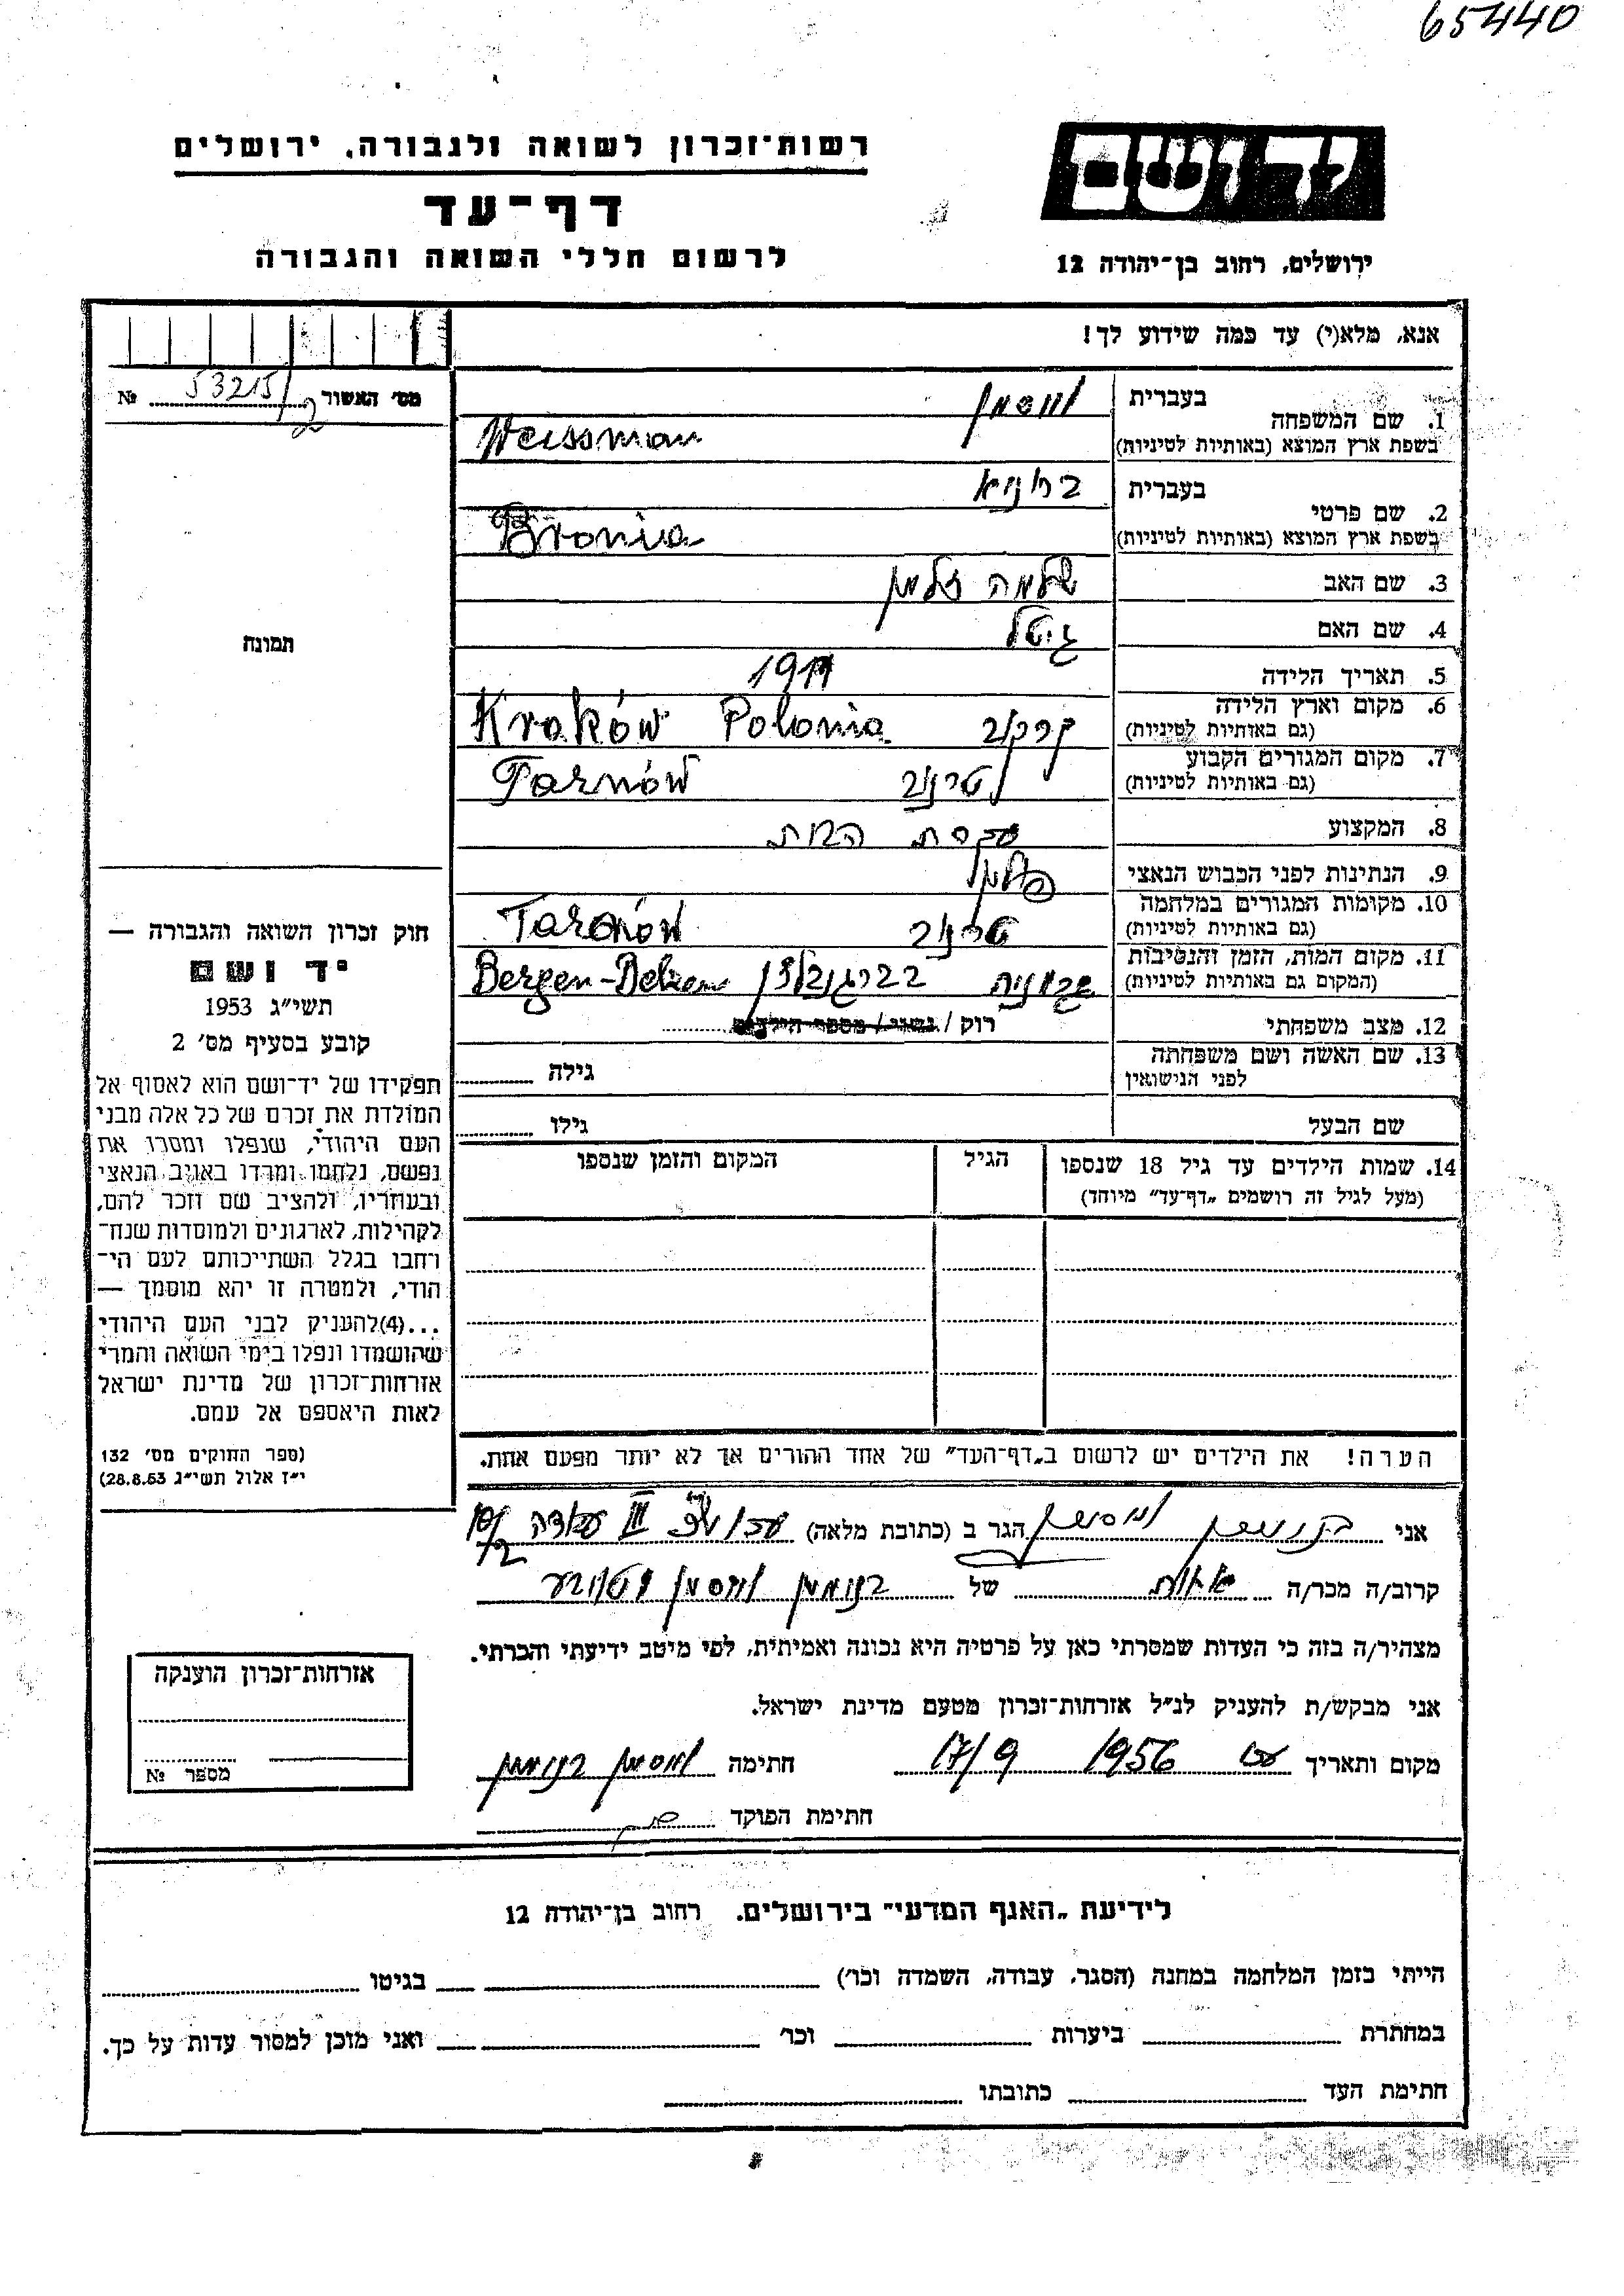 65440
רשות־זכרון לשואה ולגבורה, ירושלים
דף־עד
לרשום חללי השואה והגבורה
יד ושם
ירושלים, רחוב בן־יהודה 12
אנא, מלא(י) עד כמה שידוע לך!
מס׳ האשור 53215/2 №
1. שם המשפחה בעברית וויסמן
בשפת ארץ המוצא (באותיות לטיניות) Weissman
2. שם פרטי בעברית ברוניא
בשפת ארץ המוצא (באותיות לטיניות) Bronia
3. שם האב שלמה זלמן
4. שם האם גיטל
5. תאריך הלידה
6. מקום וארץ הלידה (גם באותיות לטיניות) קרקוב Kraków Polonia
7. מקום המגורים הקבוע (גם באותיות לטיניות) טרנוב Tarnów
8. המקצוע עקרת הבית
9. הנתינות לפני הכבוש הנאצי פולנית
10. מקומות המגורים במלחמה (גם באותיות לטיניות) טרנוב Tarnów
11. מקום המות, הזמן והנסיבות (המקום גם באותיות לטיניות) גרמניה בברגנבלזן Bergen-Belsen
12. מצב משפחתי רוק / נשוי / מספר הילדים
13. שם האשה ושם משפחתה לפני הנישואין גילה
שם הבעל גילו
14. שמות הילדים עד גיל 18 שנספו הגיל המקום והזמן שנספו
(מעל לגיל זה רושמים „דף־עד״ מיוחד)
הערה! את הילדים יש לרשום ב„דף־העד״ של אחד ההורים אך לא יותר מפעם אחת.
תמונה
חוק זכרון השואה והגבורה —
יד ושם
תשי״ג 1953
קובע בסעיף מס׳ 2
תפקידו של יד־ושם הוא לאסוף אל
המולדת את זכרם של כל אלה מבני
העם היהודי, שנפלו ומסרו את
נפשם, נלחמו ומרדו באויב הנאצי
ובעוזריו, ולהציב שם וזכר להם,
לקהילות, לארגונים ולמוסדות שנח־
רחבו בגלל השתייכותם לעם הי־
הודי, ולמטרה זו יהא מוסמך —
...(4)להעניק לבני העם היהודי
שהושמדו ונפלו בימי השואה והמרי
אזרחות־זכרון של מדינת ישראל
לאות היאספם אל עמם.
(ספר החוקים מס׳ 132
י״ז אלול תשי״ג 28.8.53)
אני בנימין וויסמן הגר ב (כתובת מלאה) III
קרוב/ה מכר/ה אחות של בנימין וויסמן
מצהיר/ה בזה כי העדות שמסרתי כאן על פרטיה היא נכונה ואמיתית, לפי מיטב ידיעתי והכרתי.
אני מבקש/ת להעניק לנ״ל אזרחות־זכרון מטעם מדינת ישראל.
מקום ותאריך עכו 17/9 1956 חתימה וויסמן בנימין
חתימת הפוקד
אזרחות־זכרון הוענקה
מספר №
לידיעת „האגף המדעי״ בירושלים. רחוב בן־יהודה 12
הייתי בזמן המלחמה במחנה (הסגר, עבודה, השמדה וכו׳) בגיטו
במחתרת ביערות וכו׳ ואני מוכן למסור עדות על כך.
חתימת העד כתובתו